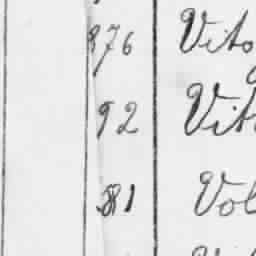 876 Vito
92 Vit
81 Vol